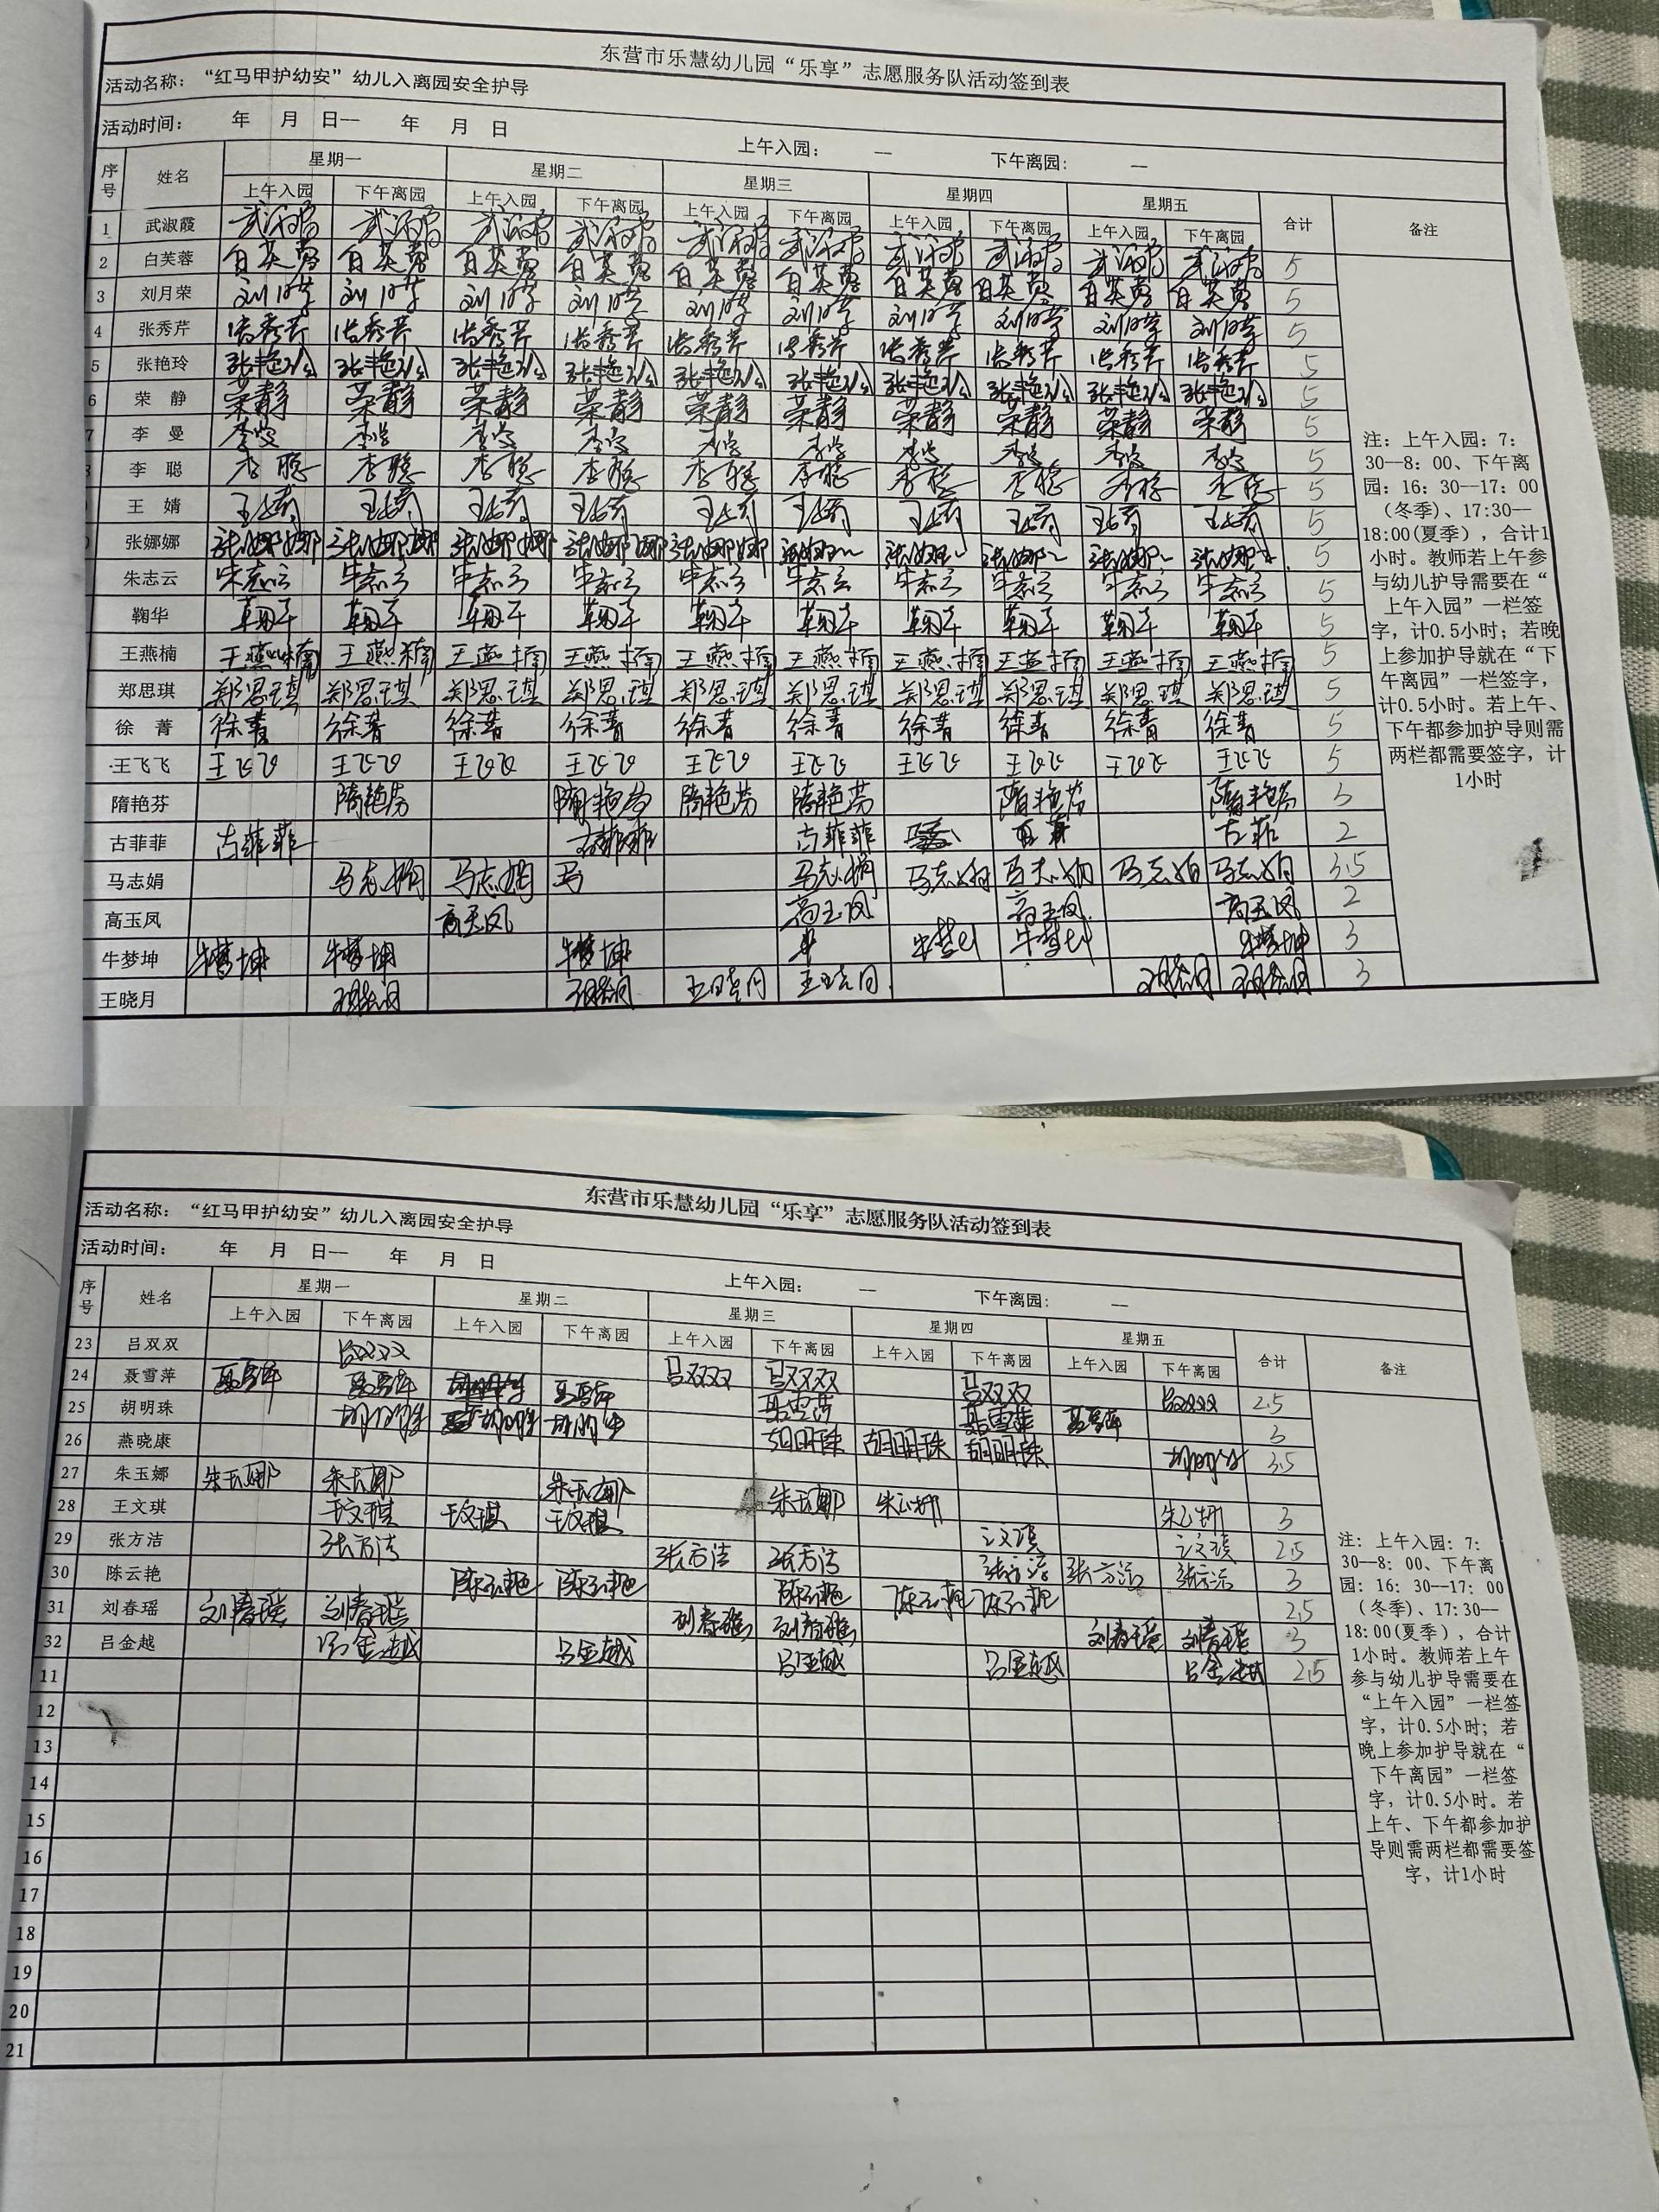 东营市乐慧幼儿园“乐享”志愿服务队活动签到表
活动名称：“红马甲护幼安”幼儿入离园安全护导
活动时间： 年 月 日-- 年 月 日 上午入园： -- 下午离园： --
序号 姓名 星期一 星期二 星期三 星期四 星期五 合计 备注
上午入园 下午离园 上午入园 下午离园 上午入园 下午离园 上午入园 下午离园 上午入园 下午离园
1 武淑霞 武淑霞 武淑霞 武淑霞 武淑霞 武淑霞 武淑霞 武淑霞 武淑霞 武淑霞 武淑霞 5
2 白芙蓉 白芙蓉 白芙蓉 白芙蓉 白芙蓉 白芙蓉 白芙蓉 白芙蓉 白芙蓉 白芙蓉 白芙蓉 5
3 刘月荣 刘月荣 刘月荣 刘月荣 刘月荣 刘月荣 刘月荣 刘月荣 刘月荣 刘月荣 刘月荣 5
4 张秀芹 张秀芹 张秀芹 张秀芹 张秀芹 张秀芹 张秀芹 张秀芹 张秀芹 张秀芹 张秀芹 5
5 张艳玲 张艳玲 张艳玲 张艳玲 张艳玲 张艳玲 张艳玲 张艳玲 张艳玲 张艳玲 张艳玲 5
6 荣 静 荣静 荣静 荣静 荣静 荣静 荣静 荣静 荣静 荣静 荣静 5
7 李 曼 李曼 李曼 李曼 李曼 李曼 李曼 李曼 李曼 李曼 李曼 5
李 聪 李聪 李聪 李聪 李聪 李聪 李聪 李聪 李聪 李聪 李聪 5
王 婧 王婧 王婧 王婧 王婧 王婧 王婧 王婧 王婧 王婧 王婧 5
张娜娜 张娜娜 张娜娜 张娜娜 张娜娜 张娜娜 张娜娜 张娜娜 张娜娜 张娜娜 张娜娜 5
朱志云 朱志云 朱志云 朱志云 朱志云 朱志云 朱志云 朱志云 朱志云 朱志云 朱志云 5
鞠华 鞠华 鞠华 鞠华 鞠华 鞠华 鞠华 鞠华 鞠华 鞠华 鞠华 5
王燕楠 王燕楠 王燕楠 王燕楠 王燕楠 王燕楠 王燕楠 王燕楠 王燕楠 王燕楠 王燕楠 5
郑思琪 郑思琪 郑思琪 郑思琪 郑思琪 郑思琪 郑思琪 郑思琪 郑思琪 郑思琪 郑思琪 5
徐 菁 徐菁 徐菁 徐菁 徐菁 徐菁 徐菁 徐菁 徐菁 徐菁 徐菁 5
王飞飞 王飞飞 王飞飞 王飞飞 王飞飞 王飞飞 王飞飞 王飞飞 王飞飞 王飞飞 王飞飞 5
隋艳芬 隋艳芬 隋艳芬 隋艳芬 隋艳芬 隋艳芬 隋艳芬 3
古菲菲 古菲菲 古菲菲 古菲菲 古菲 2
马志娟 马志娟 马志娟 马 马志娟 马志娟 马志娟 马志娟 马志娟 3.5
高玉凤 高玉凤 高玉凤 高玉凤 高玉凤 2
牛梦坤 牛梦坤 牛梦坤 牛梦坤 牛 牛梦坤 牛梦坤 牛梦坤 3
王晓月 王晓月 王晓月 王晓月 王晓月 王晓月 王晓月 3
注：上午入园：7：
30--8：00、下午离
园：16：30--17：00
（冬季）、17:30--
18:00(夏季），合计1
小时。教师若上午参
与幼儿护导需要在“
上午入园”一栏签
字，计0.5小时；若晚
上参加护导就在“下
午离园”一栏签字，
计0.5小时。若上午、
下午都参加护导则需
两栏都需要签字，计
1小时
东营市乐慧幼儿园“乐享”志愿服务队活动签到表
活动名称：“红马甲护幼安”幼儿入离园安全护导
活动时间： 年 月 日-- 年 月 日 上午入园： -- 下午离园： --
序号 姓名 星期一 星期二 星期三 星期四 星期五 合计 备注
上午入园 下午离园 上午入园 下午离园 上午入园 下午离园 上午入园 下午离园 上午入园 下午离园
23 吕双双 吕双双 吕双双 吕双双 吕双双 吕双双 2.5
24 聂雪萍 聂雪萍 聂雪萍 聂雪萍 聂雪萍 聂雪萍 聂雪萍 3
25 胡明珠 胡明珠 胡明珠 胡明珠 胡明珠 胡明珠 胡明珠 胡明珠 3.5
26 燕晓康
27 朱玉娜 朱玉娜 朱玉娜 朱玉娜 朱玉娜 朱玉娜 朱玉娜 3
28 王文琪 王文琪 王文琪 王文琪 王文琪 王文琪 2.5
29 张方洁 张方洁 张方洁 张方洁 张方洁 张方洁 张方洁 3
30 陈云艳 陈云艳 陈云艳 陈云艳 陈云艳 陈云艳 2.5
31 刘春瑶 刘春瑶 刘春瑶 刘春瑶 刘春瑶 刘春瑶 刘春瑶 3
32 吕金越 吕金越 吕金越 吕金越 吕金越 吕金越 2.5
11
12
13
14
15
16
17
18
19
20
21
注：上午入园：7：
30--8：00、下午离
园：16：30--17：00
（冬季）、17:30--
18:00(夏季），合计
1小时。教师若上午
参与幼儿护导需要在
“上午入园”一栏签
字，计0.5小时；若
晚上参加护导就在“
下午离园”一栏签
字，计0.5小时。若
上午、下午都参加护
导则需两栏都需要签
字，计1小时